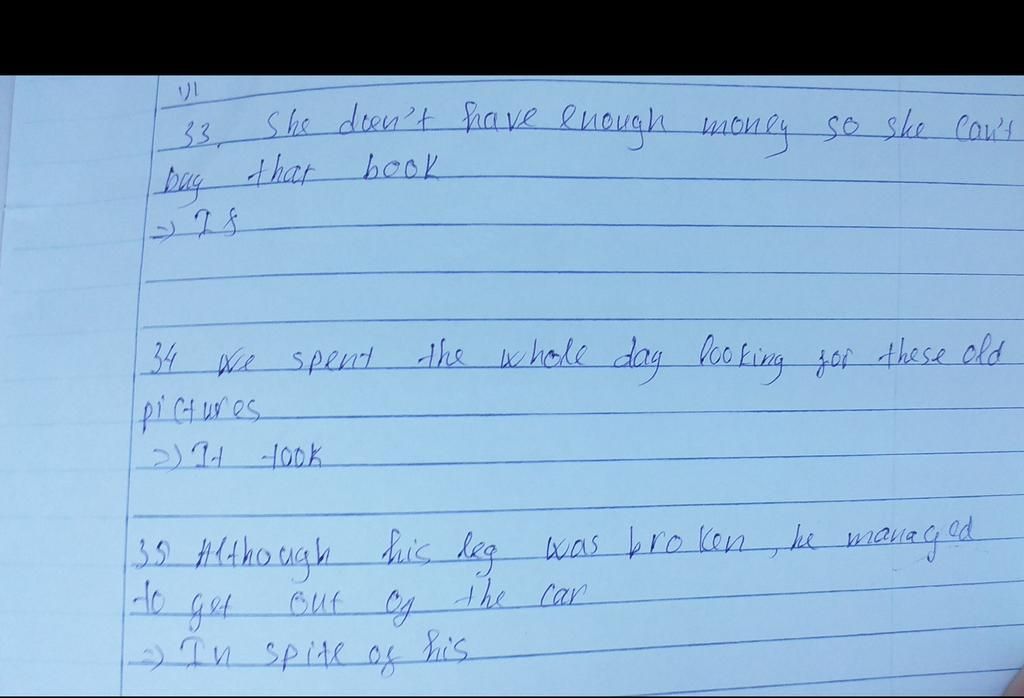 VI
33. She doen't have enough money so she can't
buy that book
=> If
34 We spent the whole day looking for these old
pictures
=> It took
35 Although his leg was broken, he managed
to get out of the car
=> In spite of his